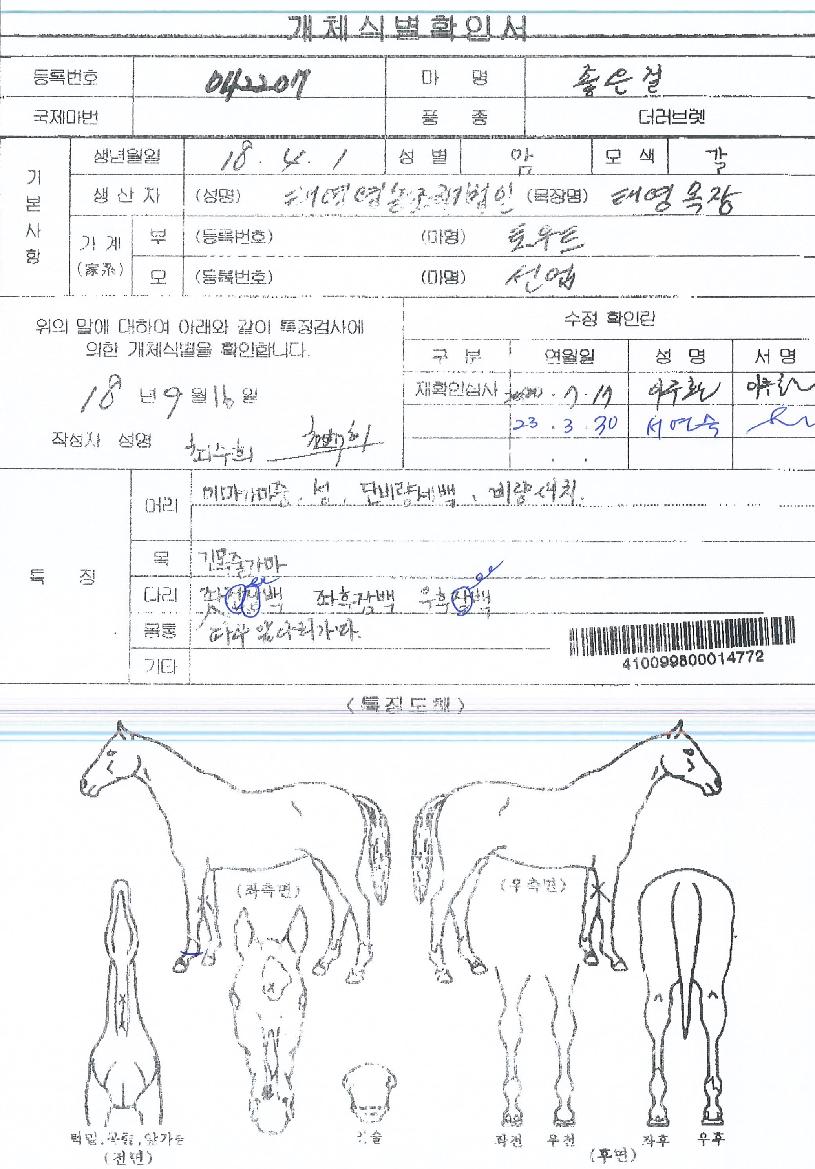 개체식별확인서
등록번호 042207 마 명 좋은걸
국제마번 품 종 더러브렛
기본사항
생년월일 18. 4. 1 성 별 암 모 색 갈
생 산 자 (성명) 태영영농조합법인 (목장명) 태영목장
가 계 (家系) 부 (등록번호) (마명) 토우트
모 (등록번호) (마명) 선업
위의 말에 대하여 아래와 같이 특징검사에
의한 개체식별을 확인합니다.
18 년 9 월 16 일
작성자 성명 최수희
수정 확인란
구 분 연월일 성 명 서 명
재확인심사 . 7 . 17
23 . 3 . 30 서연숙
특 징
머리 성, 단비량세백,
목 긴목줄가마
다리 좌후장백
몸통
기타
410099800014772
<특징도해>
(좌측면) (우측면)
턱밑,목통,앞가슴
(전면)
입술
좌전 우전 좌후 우후
(후면)